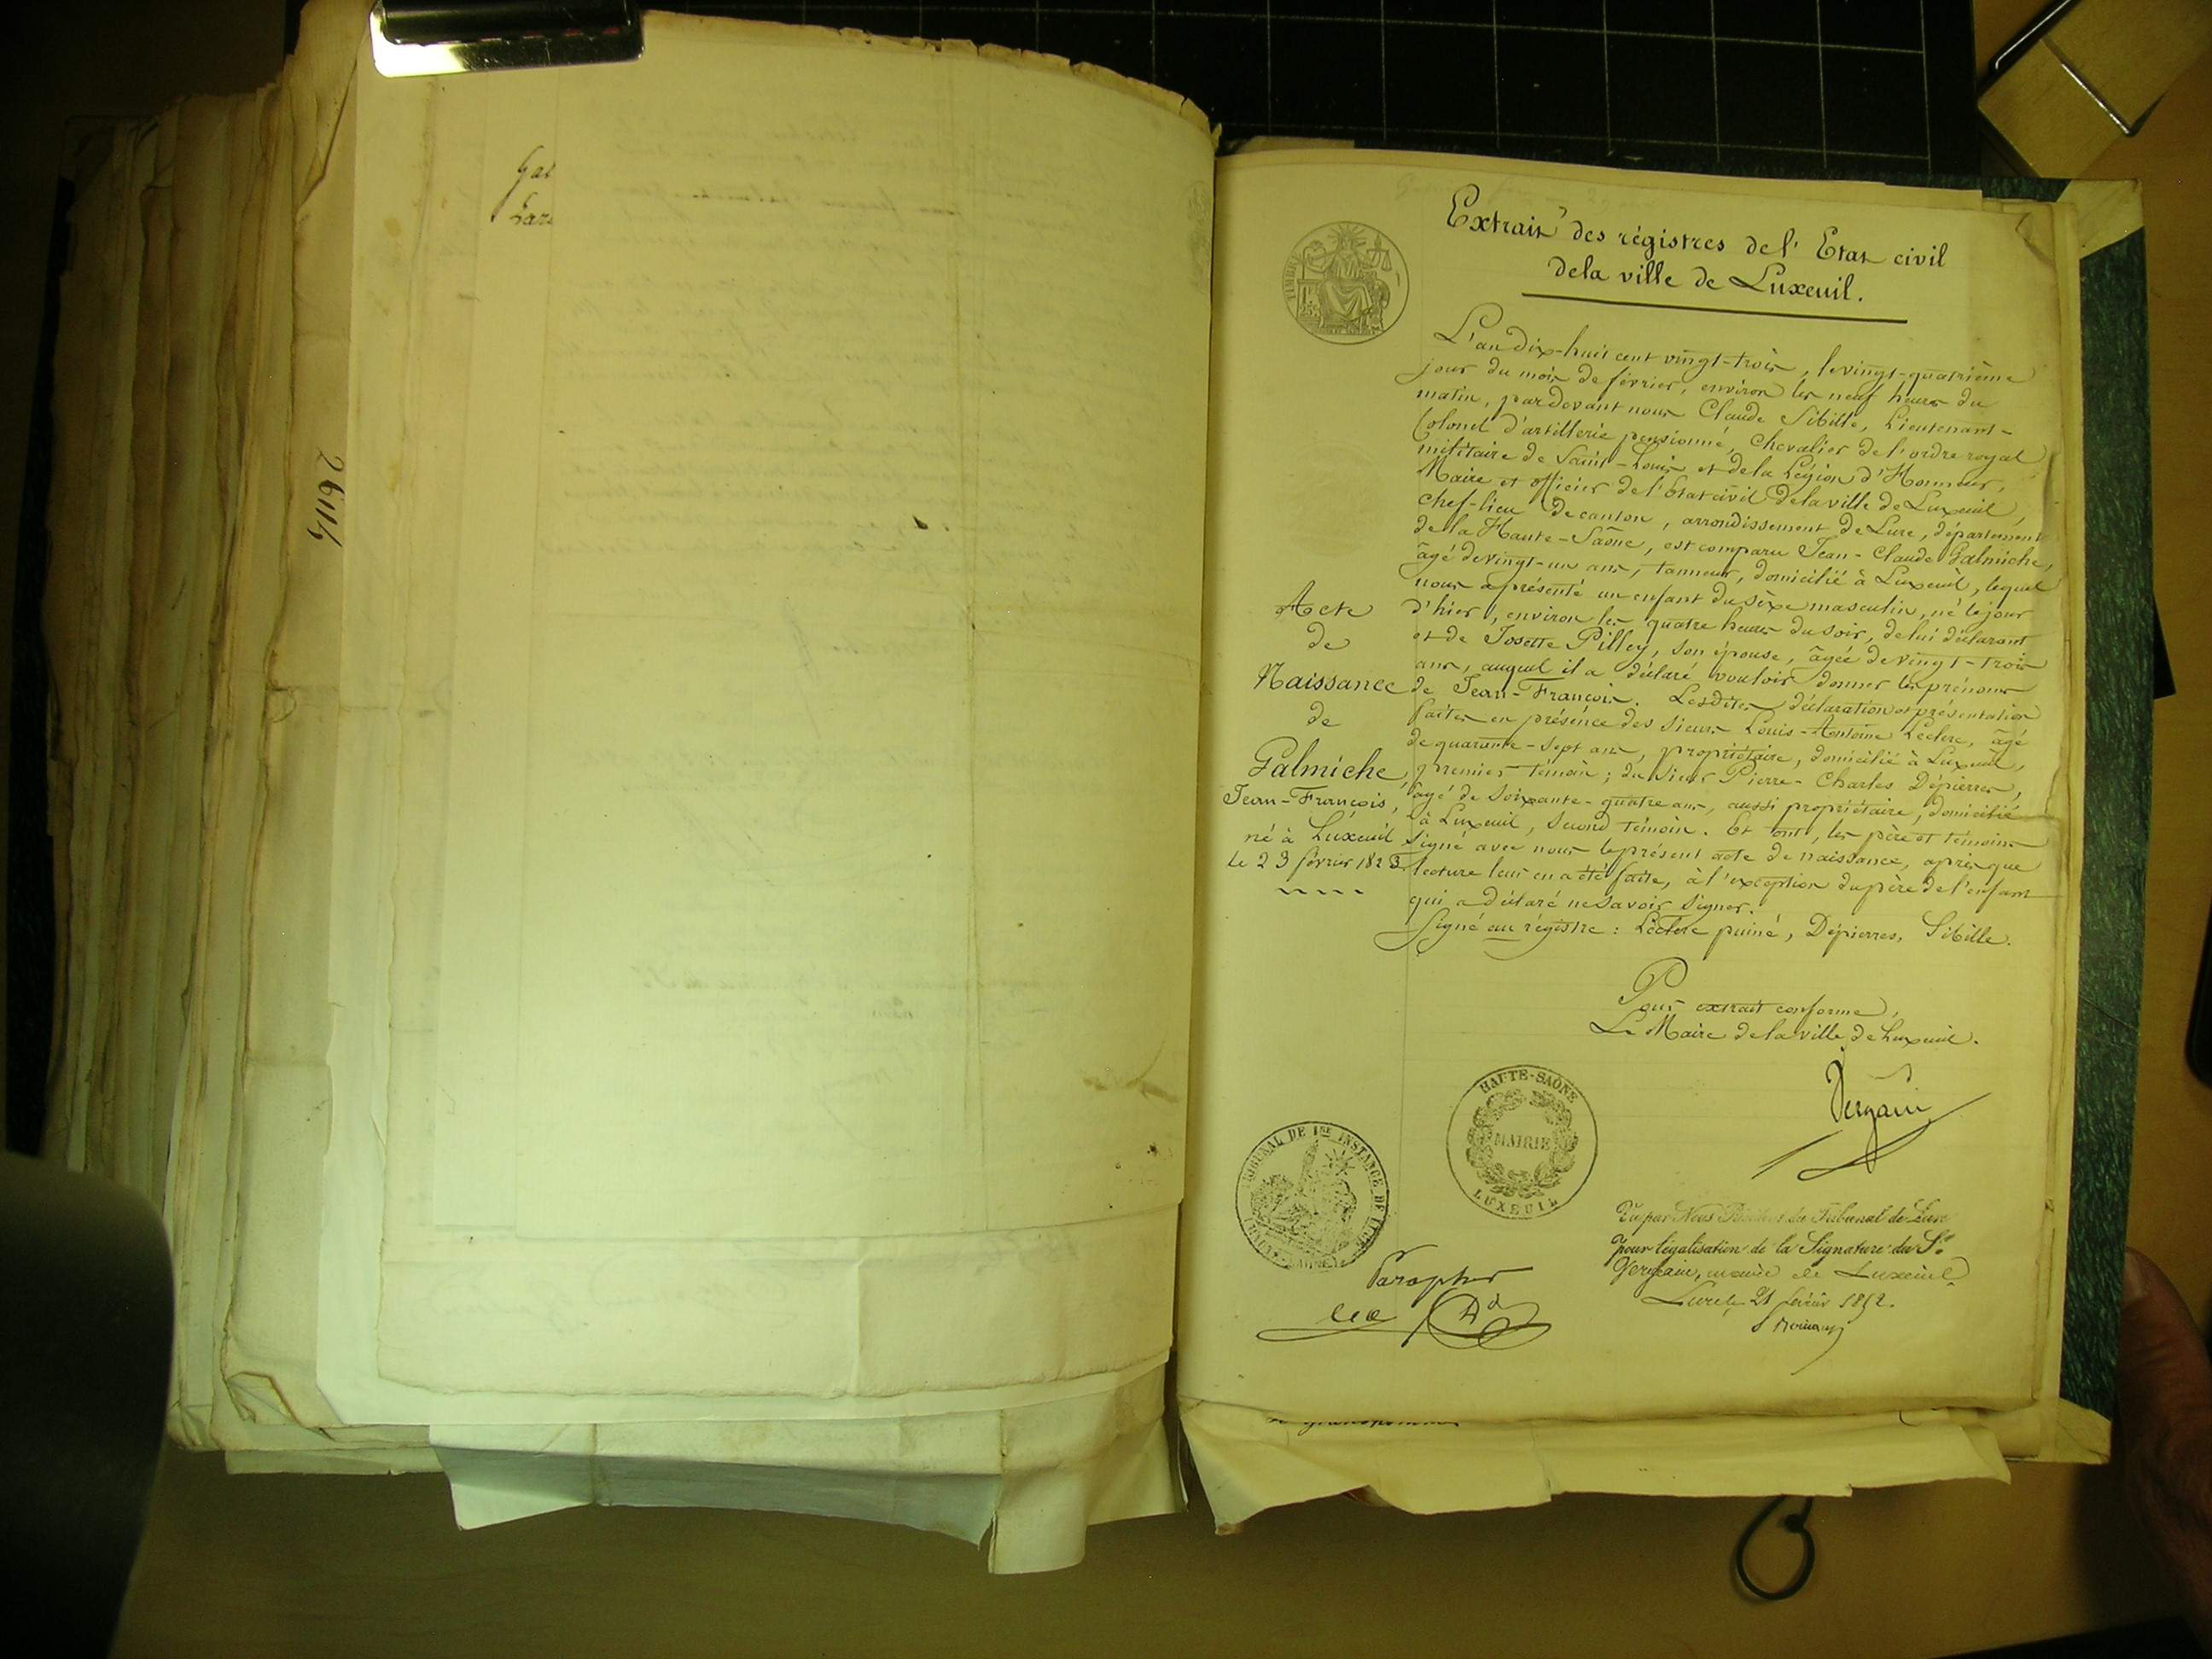 Gal
Lar
26114
Extrait des régistres de l'Etat civil
de la ville de Luxeuil.
TIMBRE
L'an dix-huit cent vingt-trois, le vingt-quatrième
jour du mois de février, environ les neuf heures du
matin, pardevant nous Claude Sibille, Lieutenant-
Colonel d'artillerie pensionné, Chevalier de l'ordre royal
militaire de Saint-Louis et de la Légion d'Honneur,
Maire et officier de l'Etat civil de la ville de Luxeuil,
chef-lieu de canton, arrondissement de Lure, département
de la Haute-Saône, est comparu Jean-Claude Galmiche,
âgé de vingt-un ans, tanneur, domicilié à Luxeuil, lequel
nous a présenté un enfant du sèxe masculin, né le jour
d'hier, environ les quatre heures du soir, de lui déclarant
et de Josette Pilley, son épouse, âgée de vingt-trois
ans, auquel il a déclaré vouloir donner les prénoms
de Jean-François. Lesdites déclaration et présentation
faites en présence des sieurs Louis-Antoine Leclerc, âgé
de quarante-sept ans, propriétaire, domicilié à Luxeuil,
premier témoin; du sieur Pierre-Charles Dépierres,
âgé de soixante-quatre ans, aussi propriétaire, domicilié
à Luxeuil, second témoin. Et ont, les père et témoins
signé avec nous le présent acte de naissance, après que
lecture leur en a été faite, à l'exception du père de l'enfant
qui a déclaré ne savoir signer.
Signé au régistre : Leclerc puiné, Dépierres, Sibille.
Acte
de
Naissance
de
Galmiche,
Jean-François,
né à Luxeuil
le 23 février 1823
Pour extrait conforme,
Le Maire de la ville de Luxeuil.
HAUTE-SAÔNE
MAIRIE
LUXEUIL
TRIBUNAL DE 1RE INSTANCE DE LURE
(HAUTE-SAÔNE)
Vu par Nous Président du Tribunal de Lure
pour légalisation de la Signature du Sr.
Vergain, maire de Luxeuil
Lure le 21 février 1852.